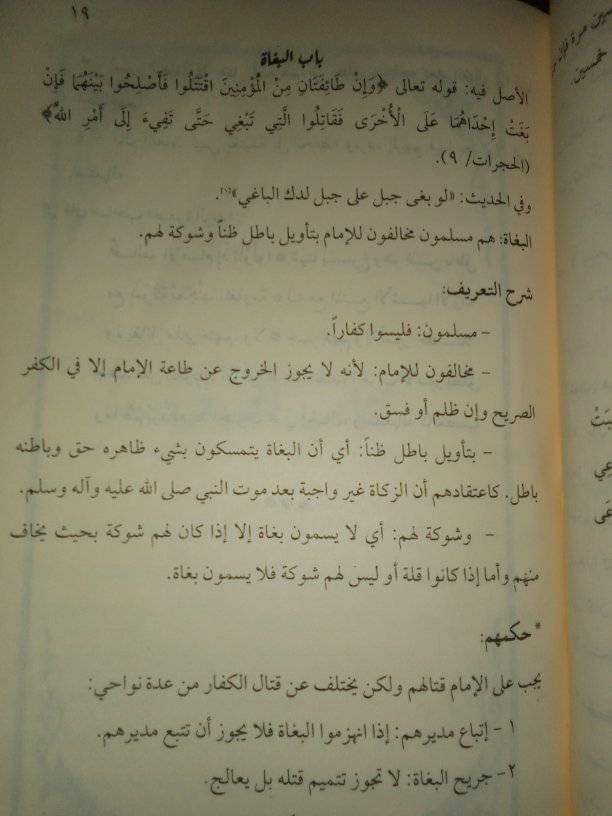 ١٩
باب البغاة
الأصل فيه: قوله تعالى ﴿وَإِنْ طَائِفَتَانِ مِنْ الْمُؤْمِنِينَ اقْتَتَلُوا فَأَصْلِحُوا بَيْنَهُمَا فَإِنْ
بَغَتْ إِحْدَاهُمَا عَلَى الْأُخْرَى فَقَاتِلُوا الَّتِي تَبْغِي حَتَّى تَفِيءَ إِلَى أَمْرِ اللَّهِ﴾
(الحجرات/ ٩).
وفي الحديث: «لو بغى جبل على جبل لدك الباغي»(١).
البغاة: هم مسلمون مخالفون للإمام بتأويل باطل ظناً وشوكة لهم.
شرح التعريف:
- مسلمون: فليسوا كفاراً.
- مخالفون للإمام: لأنه لا يجوز الخروج عن طاعة الإمام إلا في الكفر
الصريح وإن ظلم أو فسق.
- بتأويل باطل ظناً: أي أن البغاة يتمسكون بشيء ظاهره حق وباطنه
باطل. كاعتقادهم أن الزكاة غير واجبة بعد موت النبي صلى الله عليه وآله وسلم.
- وشوكة لهم: أي لا يسمون بغاة إلا إذا كان لهم شوكة بحيث يخاف
منهم وأما إذا كانوا قلة أو ليس لهم شوكة فلا يسمون بغاة.
*حكمهم:
يجب على الإمام قتالهم ولكن يختلف عن قتال الكفار من عدة نواحي:
١ - إتباع مدبرهم: إذا انهزموا البغاة فلا يجوز أن تتبع مدبرهم.
٢- جريح البغاة: لا تجوز تتميم قتله بل يعالج.
خمسين.